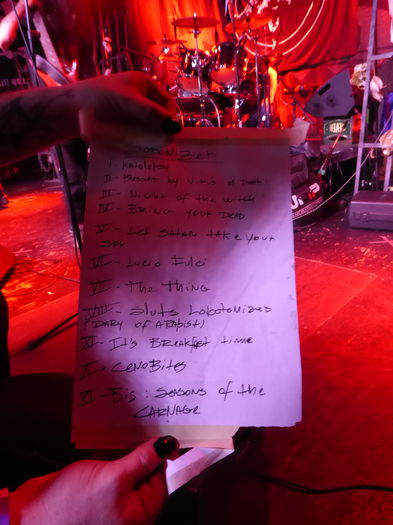 I - Katalepsy
II - Blessed by Virus of Death
III - Night of the witch
IV - Bring your Dead
V - Let Satan take your
Soul
VI - Lucio Fulci
VII - The Thing
VIII - Sluts Lobotomized
(Diary of A Rapist)
XI - It's Breakfast time
X - Cenobites
XI - Bis : Seasons of the
CARNAGE